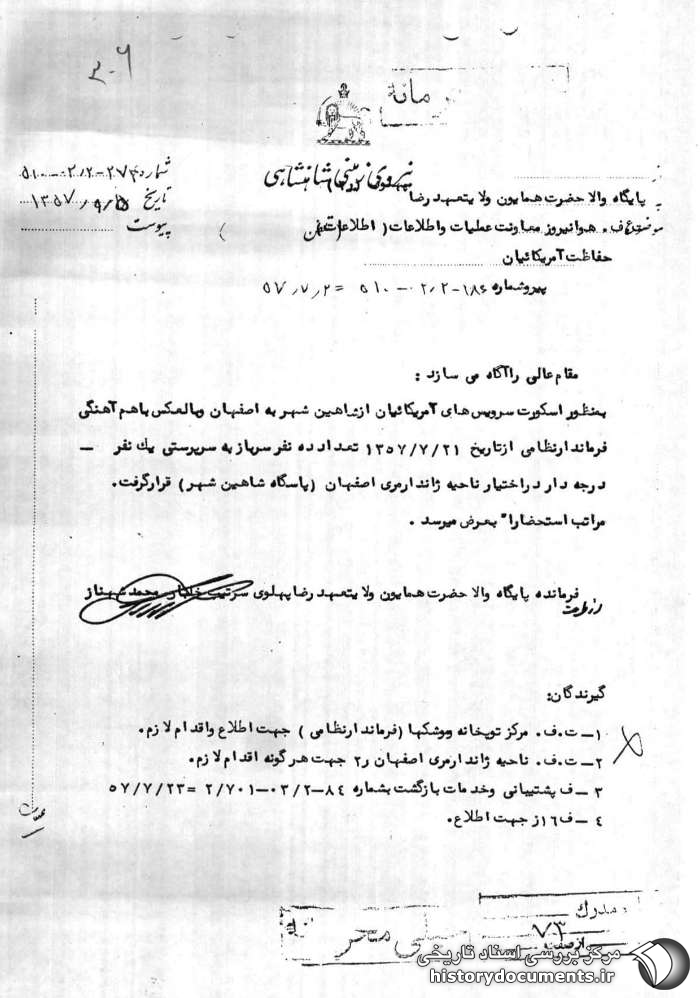 ۳۰۶
مانة
نیروی زمینی شاهنشاهی
شماره ۲۷۴-۲/۲-۰-۵۱۰
تاریخ ۱۳۵۷/۹/۵
پیوست
از
به پایگاه والا حضرت همایون ولایتعهد رضا پهلوی
موضوع ف. هوانیروز معاونت عملیات واطلاعات ( اطلاعات )
حفاظت آمریکائیان
پیرو شماره ۱۸۶-۲/۲-۰-۵۱۰ = ۵۷/۷/۲
مقام عالی راآگاه می سازد :
بمنظور اسکورت سرویس های آمریکائیان ازشاهین شهر به اصفهان وبالعکس باهم آهنگی
فرماندارنظامی ازتاریخ ۱۳۵۷/۷/۲۱ تعداد ده نفر سرباز به سرپرستی یك نفر ــ
درجه دار دراختیار ناحیه ژاندارمری اصفهان (پاسگاه شاهین شهر) قرارگرفت.
مراتب استحضارا" بعرض میرسد .
فرمانده پایگاه والا حضرت همایون ولایتعهد رضا پهلوی سرتیپ خلبان محمد شهناز
از طرف
گیرندگان:
۱ــ ت.ف. مرکز توپخانه وموشکها (فرماندارنظامی ) جهت اطلاع واقدام لازم.
۲ــ ت.ف. ناحیه ژاندارمری اصفهان ر۲ جهت هرگونه اقدام لازم.
۳ ــ ف پشتیبانی وخدمات بازگشت بشماره ۸۴ــ۰۳/۲ــ۲/۷۰۱ =۵۷/۷/۲۳
۴ ــ ف۱۶ز جهت اطلاع.
مدرك
۷۳
ازصفحه
مرکز بررسی اسناد تاریخی
historydocuments.ir